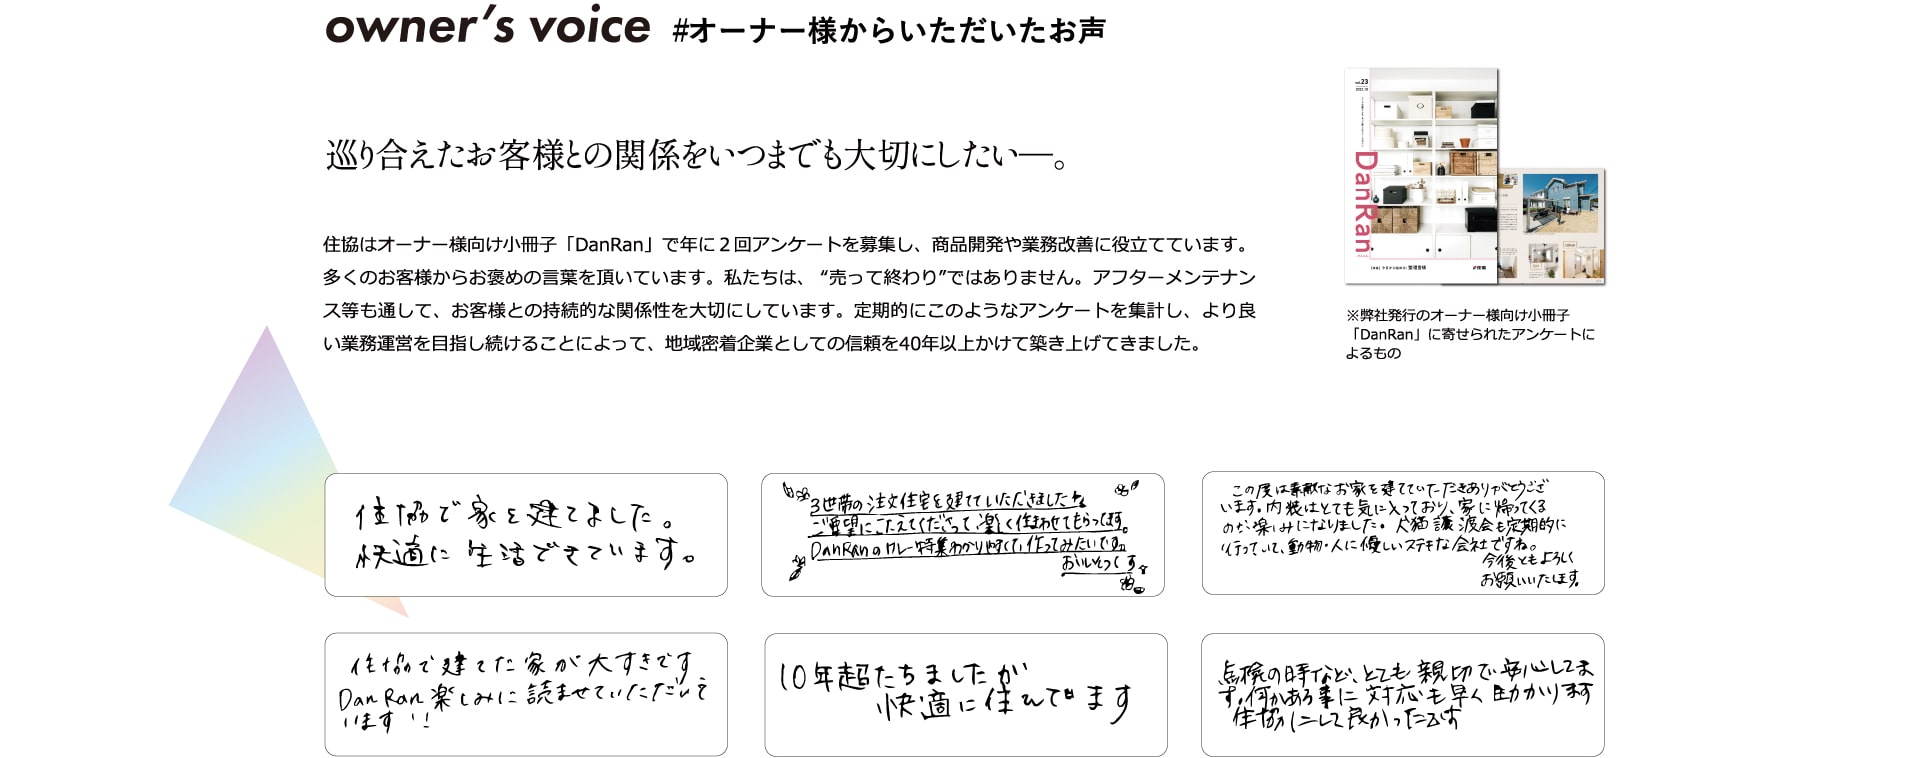 owner's voice #オーナー様からいただいたお声
巡り合えたお客様との関係をいつまでも大切にしたい―。
住協はオーナー様向け小冊子「DanRan」で年に２回アンケートを募集し、商品開発や業務改善に役立てています。
多くのお客様からお褒めの言葉を頂いています。私たちは、“売って終わり”ではありません。アフターメンテナン
ス等も通して、お客様との持続的な関係性を大切にしています。定期的にこのようなアンケートを集計し、より良
い業務運営を目指し続けることによって、地域密着企業としての信頼を40年以上かけて築き上げてきました。
vol.23
2022.10
DanRan
整理整頓
※弊社発行のオーナー様向け小冊子
「DanRan」に寄せられたアンケートに
よるもの
住協で家を建てました。
快適に生活できています。
3世帯の注文住宅を建てていただきました
ご要望にこたえてくださって、楽しく住まわせてもらってます。
DanRanのカレー特集わかりやすくて、作ってみたいです。
おいしそうです
この度は素敵なお家を建てていただきありがとうござ
います。内装はとても気に入っており、家に帰ってくる
のが楽しみになりました。犬猫譲渡会も定期的に
行っていて、動物・人に優しいステキな会社ですね。
今後ともよろしく
お願いいたします。
住協で建てた家が大すきです
DanRan楽しみに読ませていただいて
います!!
10年超たちましたが
快適に住んでます
点検の時など、とても親切で安心してま
す。何かある事に対応も早く助かります
住協にして良かったです